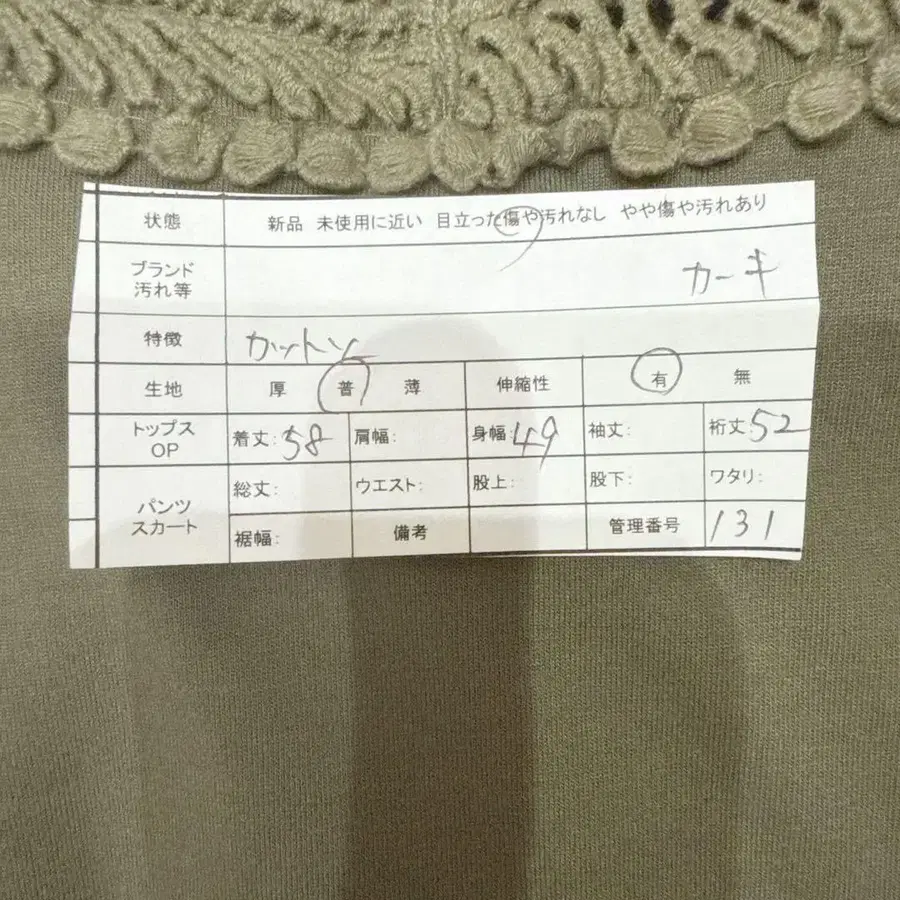 状態 新品 未使用に近い 目立った傷や汚れなし やや傷や汚れあり
ブランド
汚れ等 カーキ
特徴 カットソー
生地 厚 普 薄 伸縮性 有 無
トップス
OP 着丈:58 肩幅: 身幅:49 袖丈: 裄丈:52
パンツ
スカート 総丈: ウエスト: 股上: 股下: ワタリ:
裾幅: 備考 管理番号 131